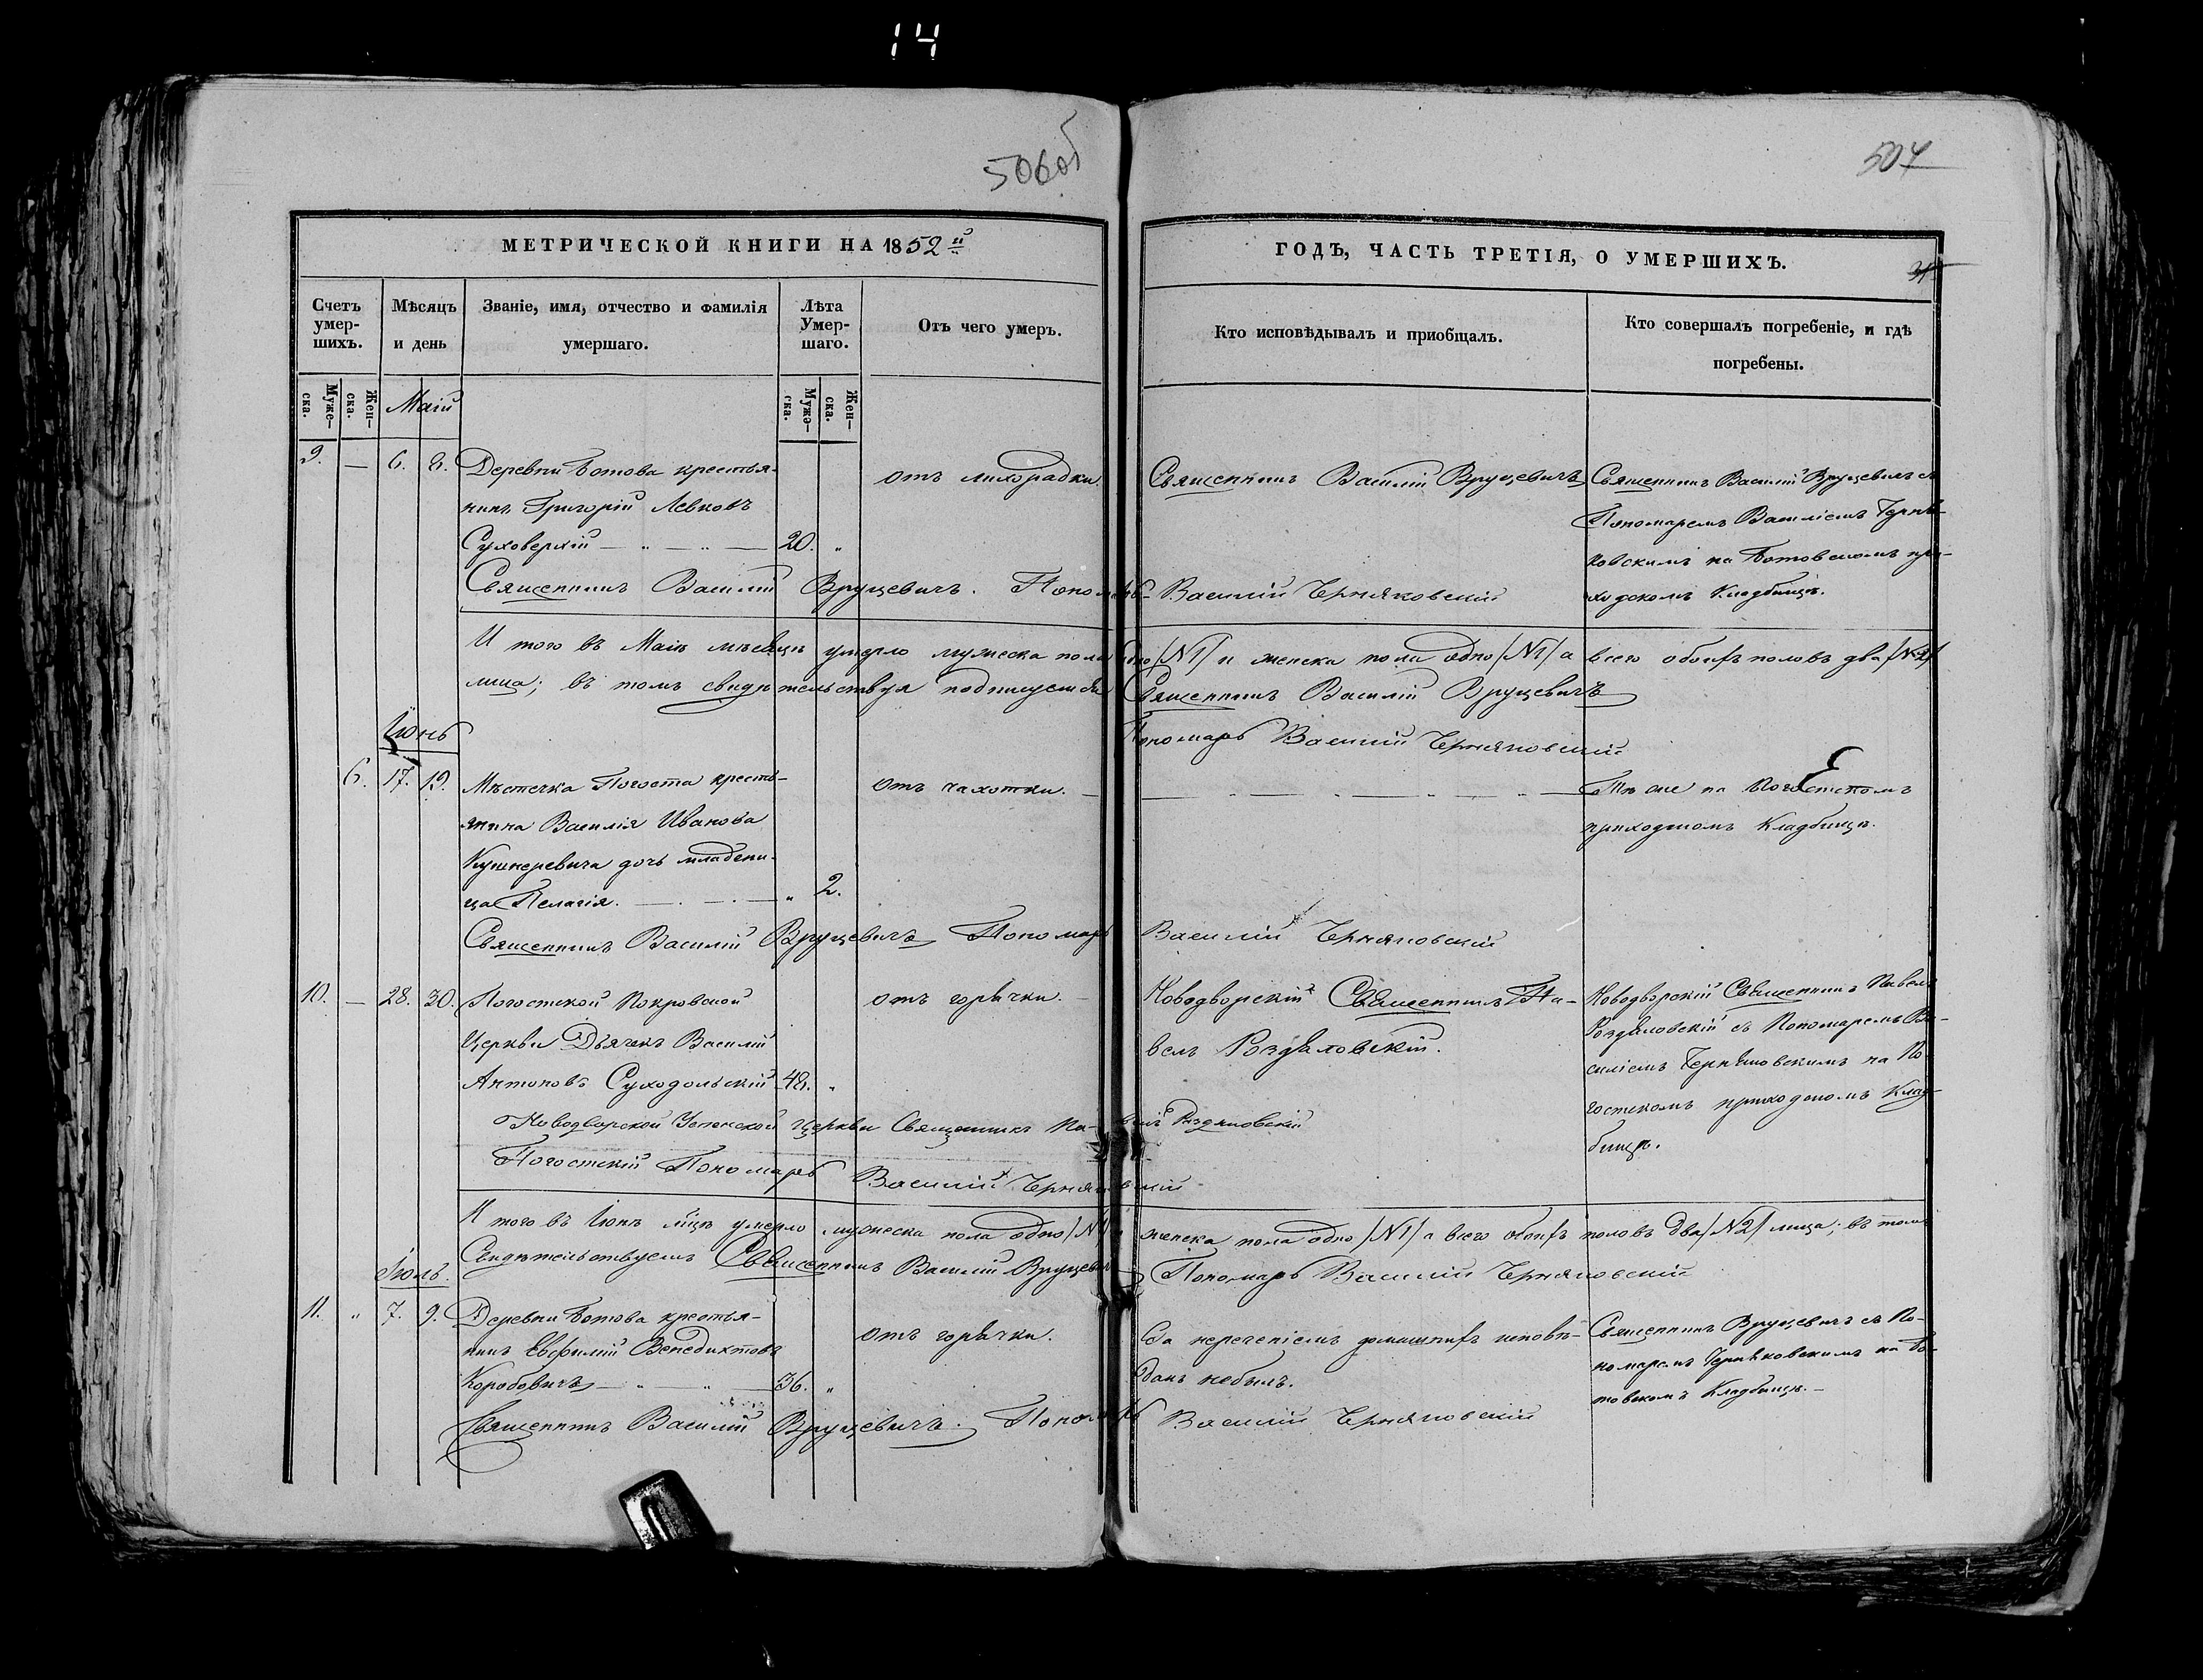 14
506об
504
МЕТРИЧЕСКОЙ КНИГИ НА 1852й
ГОДЪ, ЧАСТЬ ТРЕТІЯ, О УМЕРШИХЪ.
Счетъ умер-шихъ.
Мѣсяцъ и день
Званіе, имя, отчество и фамилія умершаго.
Лѣта Умер-шаго.
Отъ чего умеръ.
Кто исповѣдывалъ и приобщалъ.
Кто совершалъ погребеніе, и гдѣ погребены.
Муже-ска.
Жен-ска.
Маій
Муже-ска.
Жен-ска.
9. — 6. 8. Деревни Ботова крестья-
нинъ Григорій Левковъ
Суховерхій — „ — „ — 20. „
отъ лихорадки.
Священникъ Василій Вруцевичъ
Священникъ Василій Вруцевичъ съ
Пономаремъ Василіемъ Черня-
ковскимъ на Ботовскомъ при-
ходскомъ Кладбищѣ.
Священникъ Василій Вруцевичъ. Пономарь Василій Черняковскій
И того въ Маіѣ мѣсяцѣ умерло мужеска пола одно /N1/ и женска пола одно /N1/ а всего обоихъ половъ два /N2/
лица; въ томъ свидѣтельствуя подписуемся Священникъ Василій Вруцевичъ
Пономарь Василій Черняковскій
Іюнь
6. 17. 19. Мѣстечка Погоста кресть-
янина Василія Иванова
Кушнеревича дочь младени-
ца Пелагія. — . — . — „ 2.
отъ чахотки. —
— „ — „ — „ — „ —
Тѣ же на Погостскомъ
приходскомъ Кладбищѣ.
Священникъ Василій Вруцевичъ Пономарь Василій Черняковскій
10. — 28. 30. Погостской Покровской
Церкви Дьячекъ Василій
Антоновъ Суходольскій 48. „
отъ горячки. —
Новодворскій Священникъ Па-
велъ Роздяловскій.
Новодворскій Священникъ Павелъ
Роздяловскій съ Пономаремъ Ва-
силіемъ Черняковскимъ на По-
гостскомъ приходскомъ Клад-
бищѣ.
Новодворской Успенской Церкви Священникъ Па-велъ Роздяловскій
Погостскій Пономарь Василій Черняковскій
И того въ Іюнѣ мцѣ умерло мужеска пола одно /N1/ женска пола одно /N1/ а всего обоихъ половъ два /N2/ лица; въ томъ
Свидѣтельствуемъ Священникъ Василій Вруцевичъ Пономарь Василій Черняковскій
Іюль.
11. „ 7. 9. Деревни Ботова крестья-
нинъ Евфимій Венедиктовъ
Коробовичъ — „ — „ — 36. „
отъ горячки.
За нереченіемъ домашнихъ исповѣ-
данъ небылъ.
Священникъ Вруцевичъ съ По-
номаремъ Черняковскимъ на Бо-
товскомъ Кладбищѣ. —
Священникъ Василій Вруцевичъ. Пономарь Василій Черняковскій